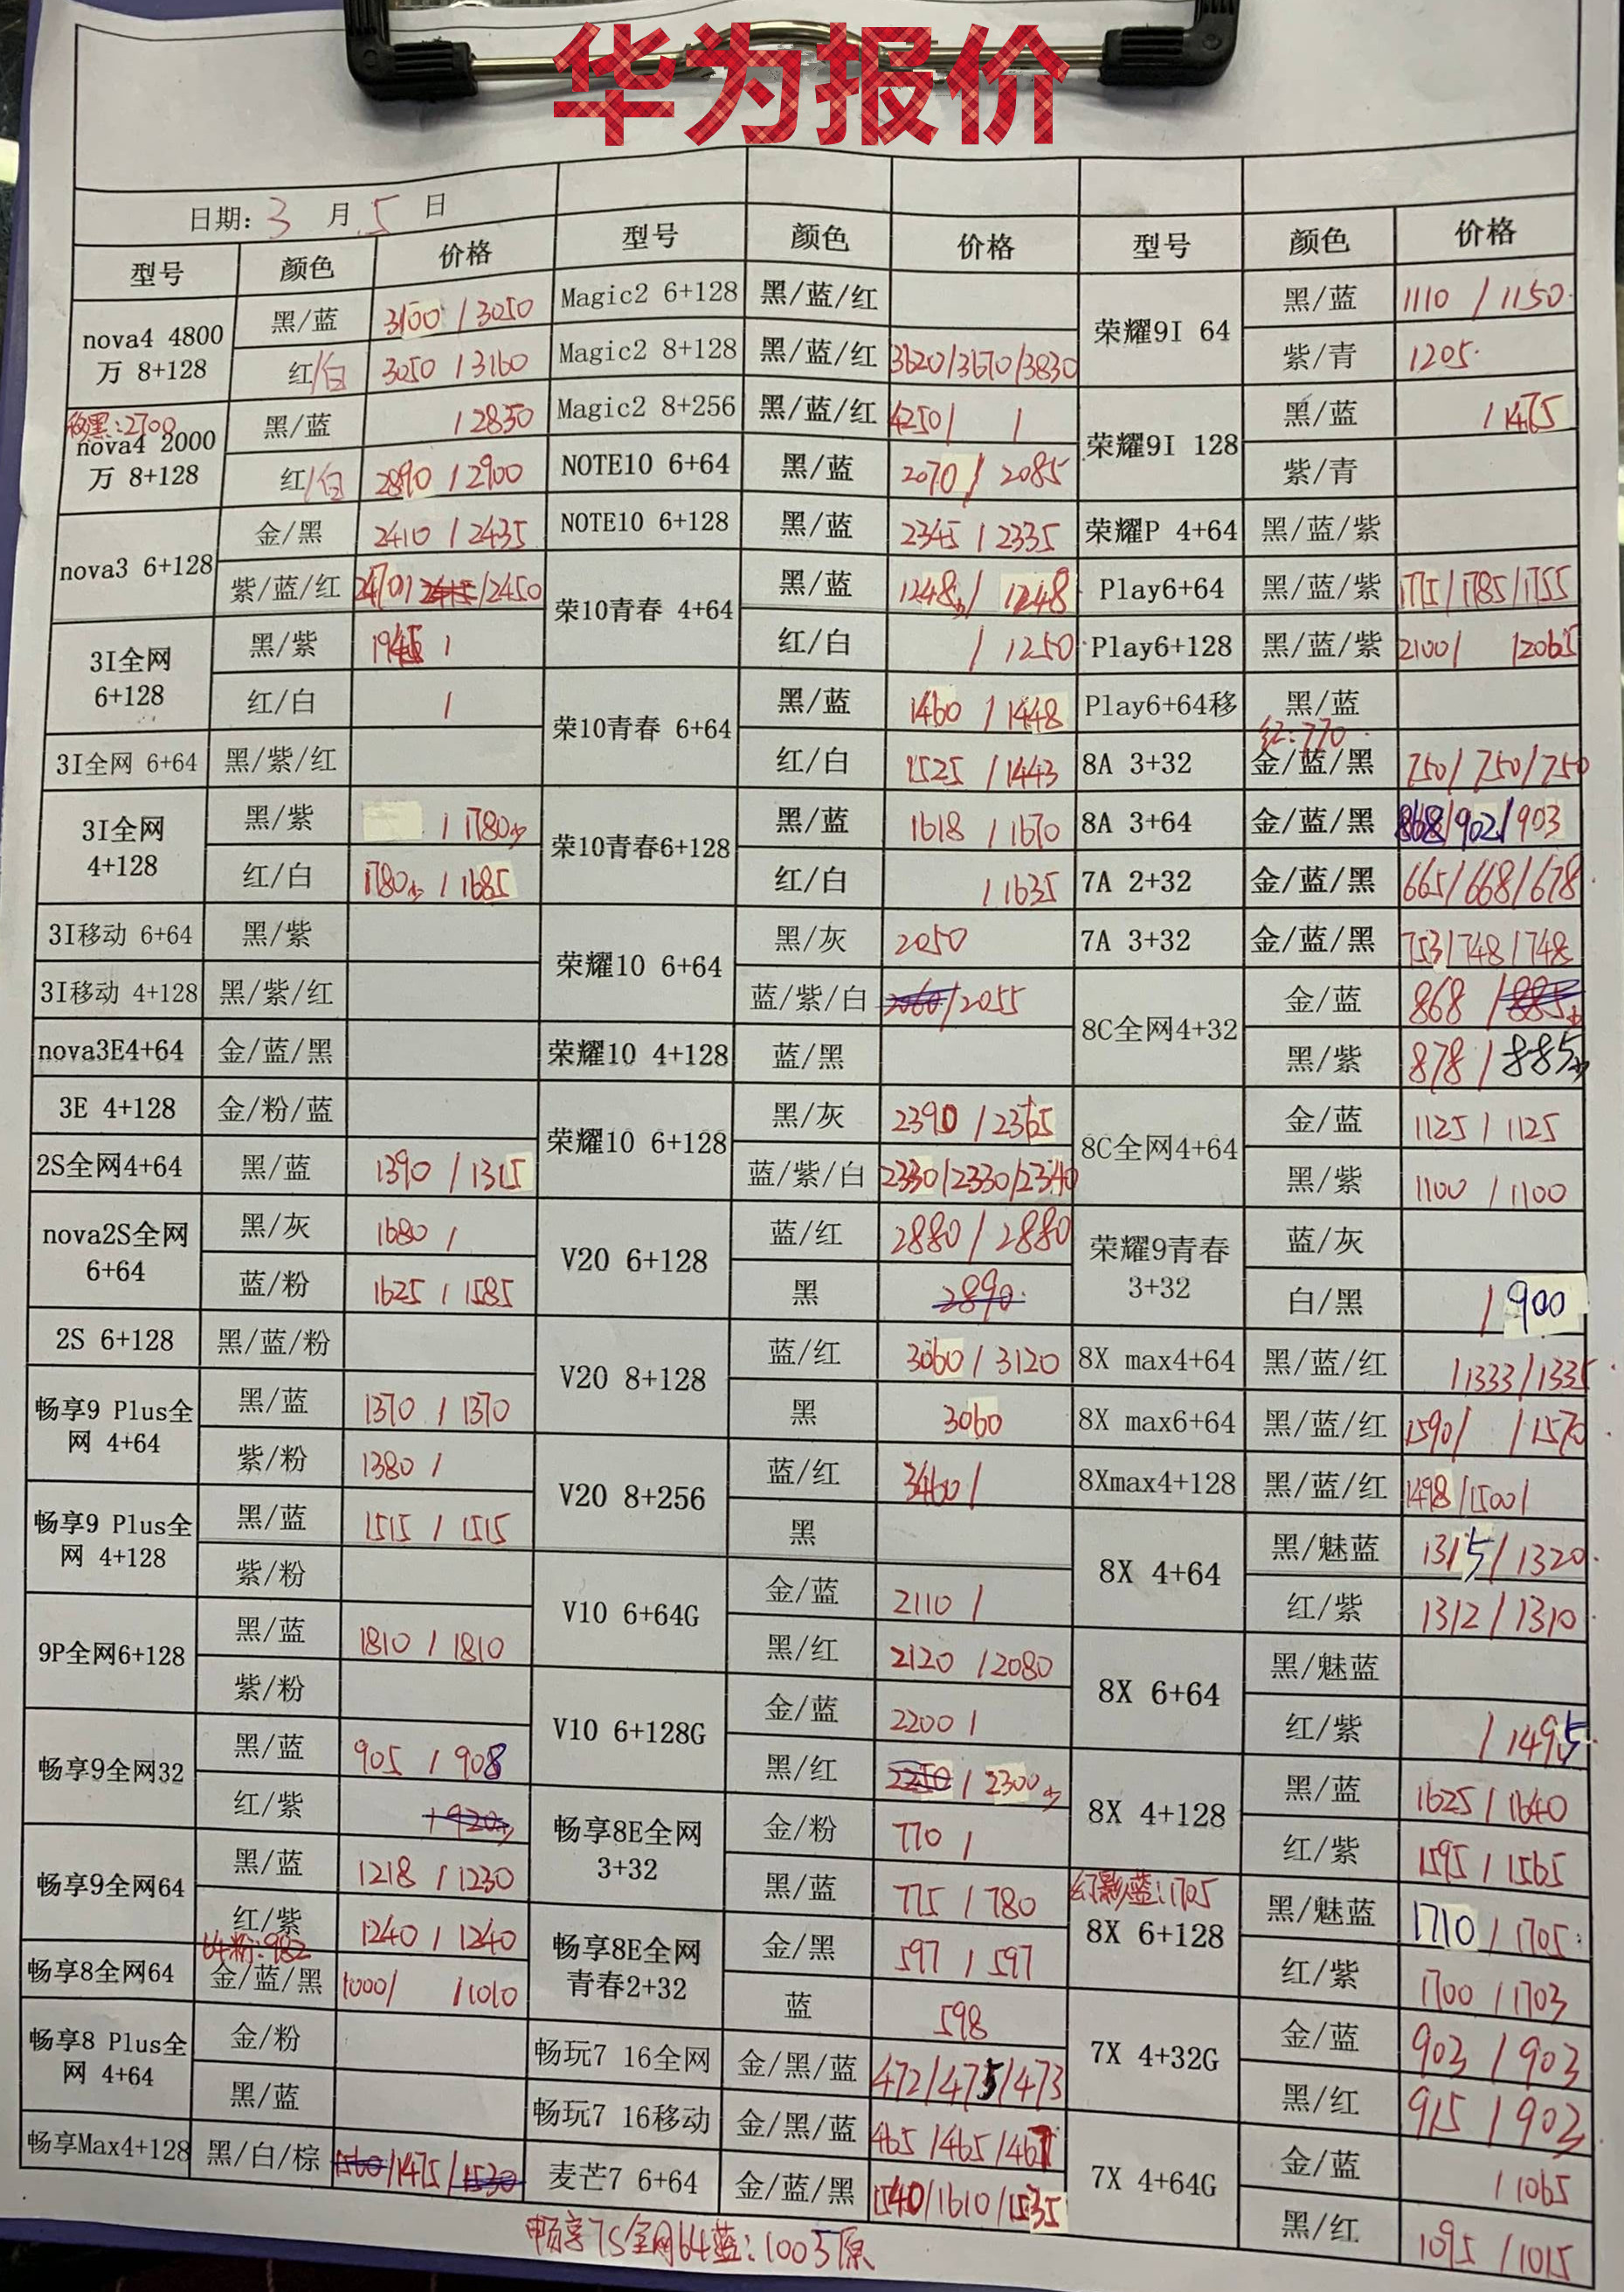 华为报价
日期: 3 月 5 日
型号 颜色 价格
nova4 4800万 8+128 黑/蓝 3100 / 3050
红/白 3050 / 3160
移黑:2700
nova4 2000万 8+128 黑/蓝 / 2830
红/白 2890 / 2900
nova3 6+128 金/黑 2410 / 2435
紫/蓝/红 2470 / /2450
3I全网 6+128 黑/紫 1945 /
红/白 /
3I全网 6+64 黑/紫/红
3I全网 4+128 黑/紫 / 1780少
红/白 1780少 / 1685
3I移动 6+64 黑/紫
3I移动 4+128 黑/紫/红
nova3E4+64 金/蓝/黑
3E 4+128 金/粉/蓝
2S全网4+64 黑/蓝 1390 / 1315
nova2S全网 6+64 黑/灰 1680 /
蓝/粉 1625 / 1585
2S 6+128 黑/蓝/粉
畅享9 Plus全网 4+64 黑/蓝 1370 / 1370
紫/粉 1380 /
畅享9 Plus全网 4+128 黑/蓝 1515 / 1515
紫/粉
9P全网6+128 黑/蓝 1810 / 1810
紫/粉
畅享9全网32 黑/蓝 905 / 908
红/紫 / 920少
畅享9全网64 黑/蓝 1218 / 1230
红/紫 1240 / 1240
64粉:982
畅享8全网64 金/蓝/黑 1000/ /1010
畅享8 Plus全网 4+64 金/粉
黑/蓝
畅享Max4+128 黑/白/棕 1560/1475/1530
型号 颜色 价格
Magic2 6+128 黑/蓝/红
Magic2 8+128 黑/蓝/红 3620/3670/3830
Magic2 8+256 黑/蓝/红 4250/ /
NOTE10 6+64 黑/蓝 2070 / 2085
NOTE10 6+128 黑/蓝 2345 / 2335
荣10青春 4+64 黑/蓝 1248少/ 1248
红/白 / 1250
荣10青春 6+64 黑/蓝 1460 / 1448
红/白 1525 / 1443
荣10青春6+128 黑/蓝 1618 / 1670
红/白 / 1635
荣耀10 6+64 黑/灰 2050
蓝/紫/白 2060/2055
荣耀10 4+128 蓝/黑
荣耀10 6+128 黑/灰 2390 / 2365
蓝/紫/白 2330/2330/2340
V20 6+128 蓝/红 2880 / 2880
黑 2890
V20 8+128 蓝/红 3060 / 3120
黑 3060
V20 8+256 蓝/红 3460 /
黑
V10 6+64G 金/蓝 2110 /
黑/红 2120 / 2080
V10 6+128G 金/蓝 2200 /
黑/红 2250 / 2300少
畅享8E全网 3+32 金/粉 770 /
黑/蓝 775 / 780
畅享8E全网青春2+32 金/黑 597 / 597
蓝 598
畅玩7 16全网 金/黑/蓝 472/475/473
畅玩7 16移动 金/黑/蓝 465/465/467
麦芒7 6+64 金/蓝/黑 1540/1610/1535
型号 颜色 价格
荣耀9I 64 黑/蓝 1110 / 1150
紫/青 1205
荣耀9I 128 黑/蓝 / 1475
紫/青
荣耀P 4+64 黑/蓝/紫
Play6+64 黑/蓝/紫 1775/1785/1755
Play6+128 黑/蓝/紫 2100/ /2065
Play6+64移 黑/蓝
红:770
8A 3+32 金/蓝/黑 750/750/750
8A 3+64 金/蓝/黑 868/902/903
7A 2+32 金/蓝/黑 665/668/678
7A 3+32 金/蓝/黑 753/748/748
8C全网4+32 金/蓝 868 / 885少
黑/紫 878 / 885少
8C全网4+64 金/蓝 1125 / 1125
黑/紫 1100 / 1100
荣耀9青春 3+32 蓝/灰
白/黑 / 900
8X max4+64 黑/蓝/红 /1333/1335
8X max6+64 黑/蓝/红 1590/ /1570
8Xmax4+128 黑/蓝/红 1498/1500/
8X 4+64 黑/魅蓝 1315 / 1320
红/紫 1312 / 1310
8X 6+64 黑/魅蓝
红/紫 / 1495
8X 4+128 黑/蓝 1625 / 1640
红/紫 1595 / 1565
幻影蓝:1705
8X 6+128 黑/魅蓝 1710 / 1705
红/紫 1700 / 1703
7X 4+32G 金/蓝 903 / 903
黑/红 915 / 903
7X 4+64G 金/蓝 / 1065
黑/红 1095 / 1015
畅享7S全网64蓝:1003原